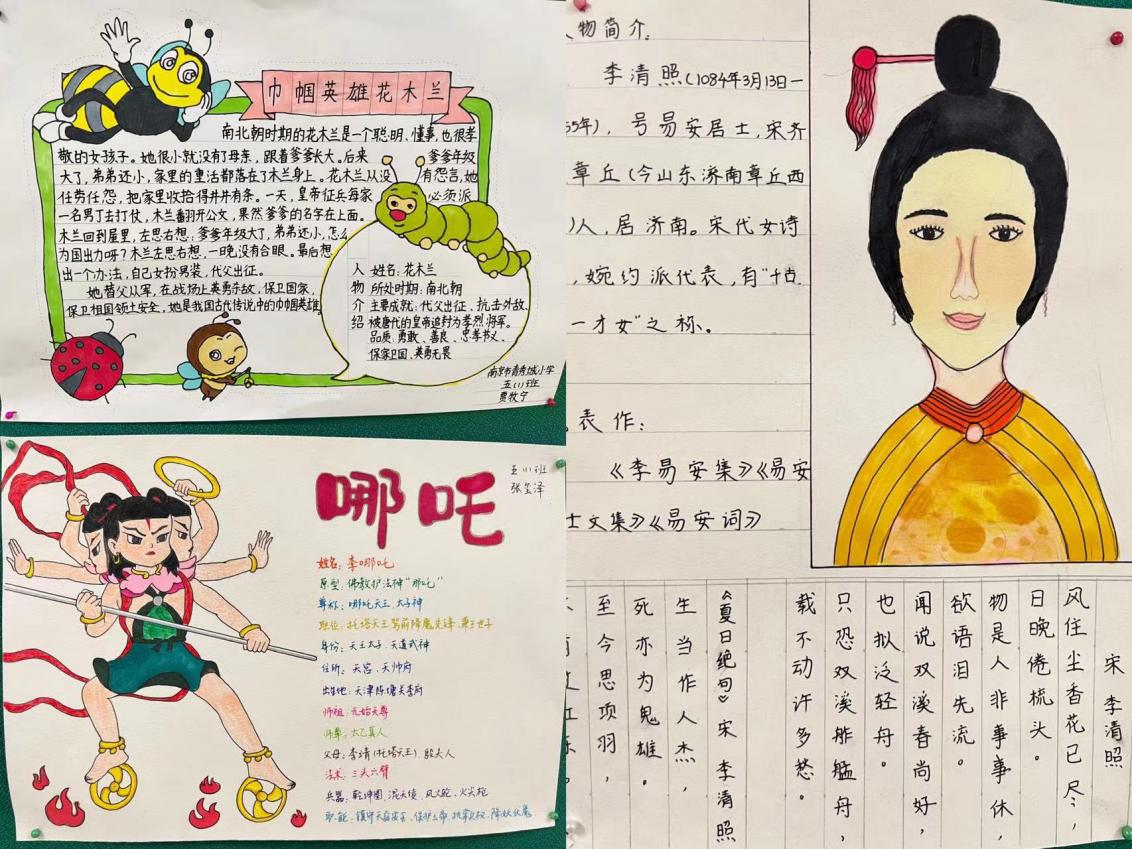 巾帼英雄花木兰
南北朝时期的花木兰是一个聪明、懂事,也很孝
敬的女孩子。她很小就没有母亲,跟着爹爹长大。后来 爹爹年级
大了,弟弟还小,家里的重活都落在了木兰身上。花木兰从没 有怨言,她
任劳任怨,把家里收拾得井井有条。一天,皇帝征兵每家 必须派
一名男丁去打仗,木兰翻开公文,果然爹爹的名字在上面。
木兰回到屋里,左思右想:爹爹年级大了,弟弟还小,怎么
为国出力呀?木兰左思右想,一晚没有合眼。最后想
出一个办法,自己女扮男装,代父出征。
她替父从军,在战场上英勇杀敌,保卫国家,
保卫祖国领土安全,她是我国古代传说中的巾帼英雄
人物介绍
姓名:花木兰
所处时期:南北朝
主要成就:代父出征、抗击外敌、
被唐代的皇帝追封为孝烈将军。
品质:勇敢、善良、忠孝节义、
保家卫国、英勇无畏
南京市青秀城小学
五(1)班
贾牧宁
物简介:
李清照(1084年3月13日一
55年),号易安居士,宋齐
章丘(今山东济南章丘西
)人,居济南。宋代女诗
,婉约派代表,有"千古
一才女"之称。
表作:
《李易安集》《易安
士文集》《易安词》
宋 李清照
风住尘香花已尽,
日晚倦梳头。
物是人非事事休,
欲语泪先流。
闻说双溪春尚好,
也拟泛轻舟。
只恐双溪舴艋舟,
载不动许多愁。
《夏日绝句》宋 李清照
生当作人杰,
死亦为鬼雄。
至今思项羽,
哪吒
五(1)班
张玺泽
姓名:李哪吒
原型:佛教护法神"哪吒"
尊称:哪吒天王、太子神
职位:托塔天王驾前降魔先锋、第三世子
身份:天王太子、天道武神
住所:天宫、天帅府
出生地:天津陈塘关李府
师祖:元始天尊
师尊:太乙真人
父母:李靖(托塔天王)、殷夫人
法术:三头六臂
兵器:乾坤圈、混天绫、风火轮、火尖枪
职能:镇守天庭安全、保护上帝、